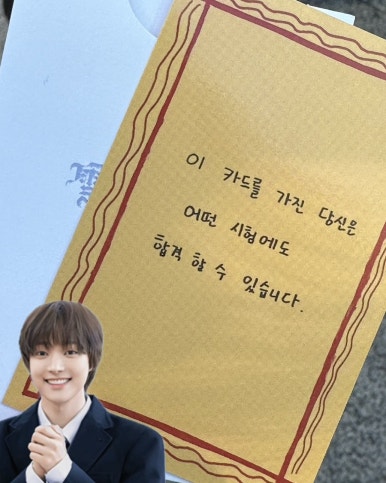 이 카드를 가진 당신은
어떤 시험에도
합격 할 수 있습니다.